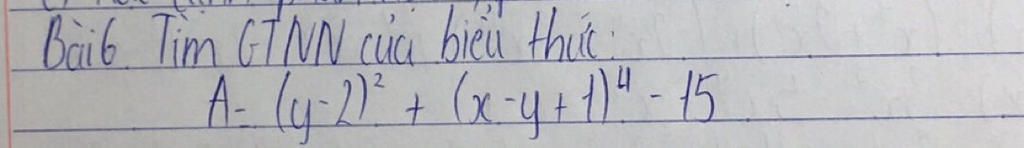 Bài 6. Tìm GTNN của biểu thức:
A = (y-2)² + (x-y+1)⁴ - 15